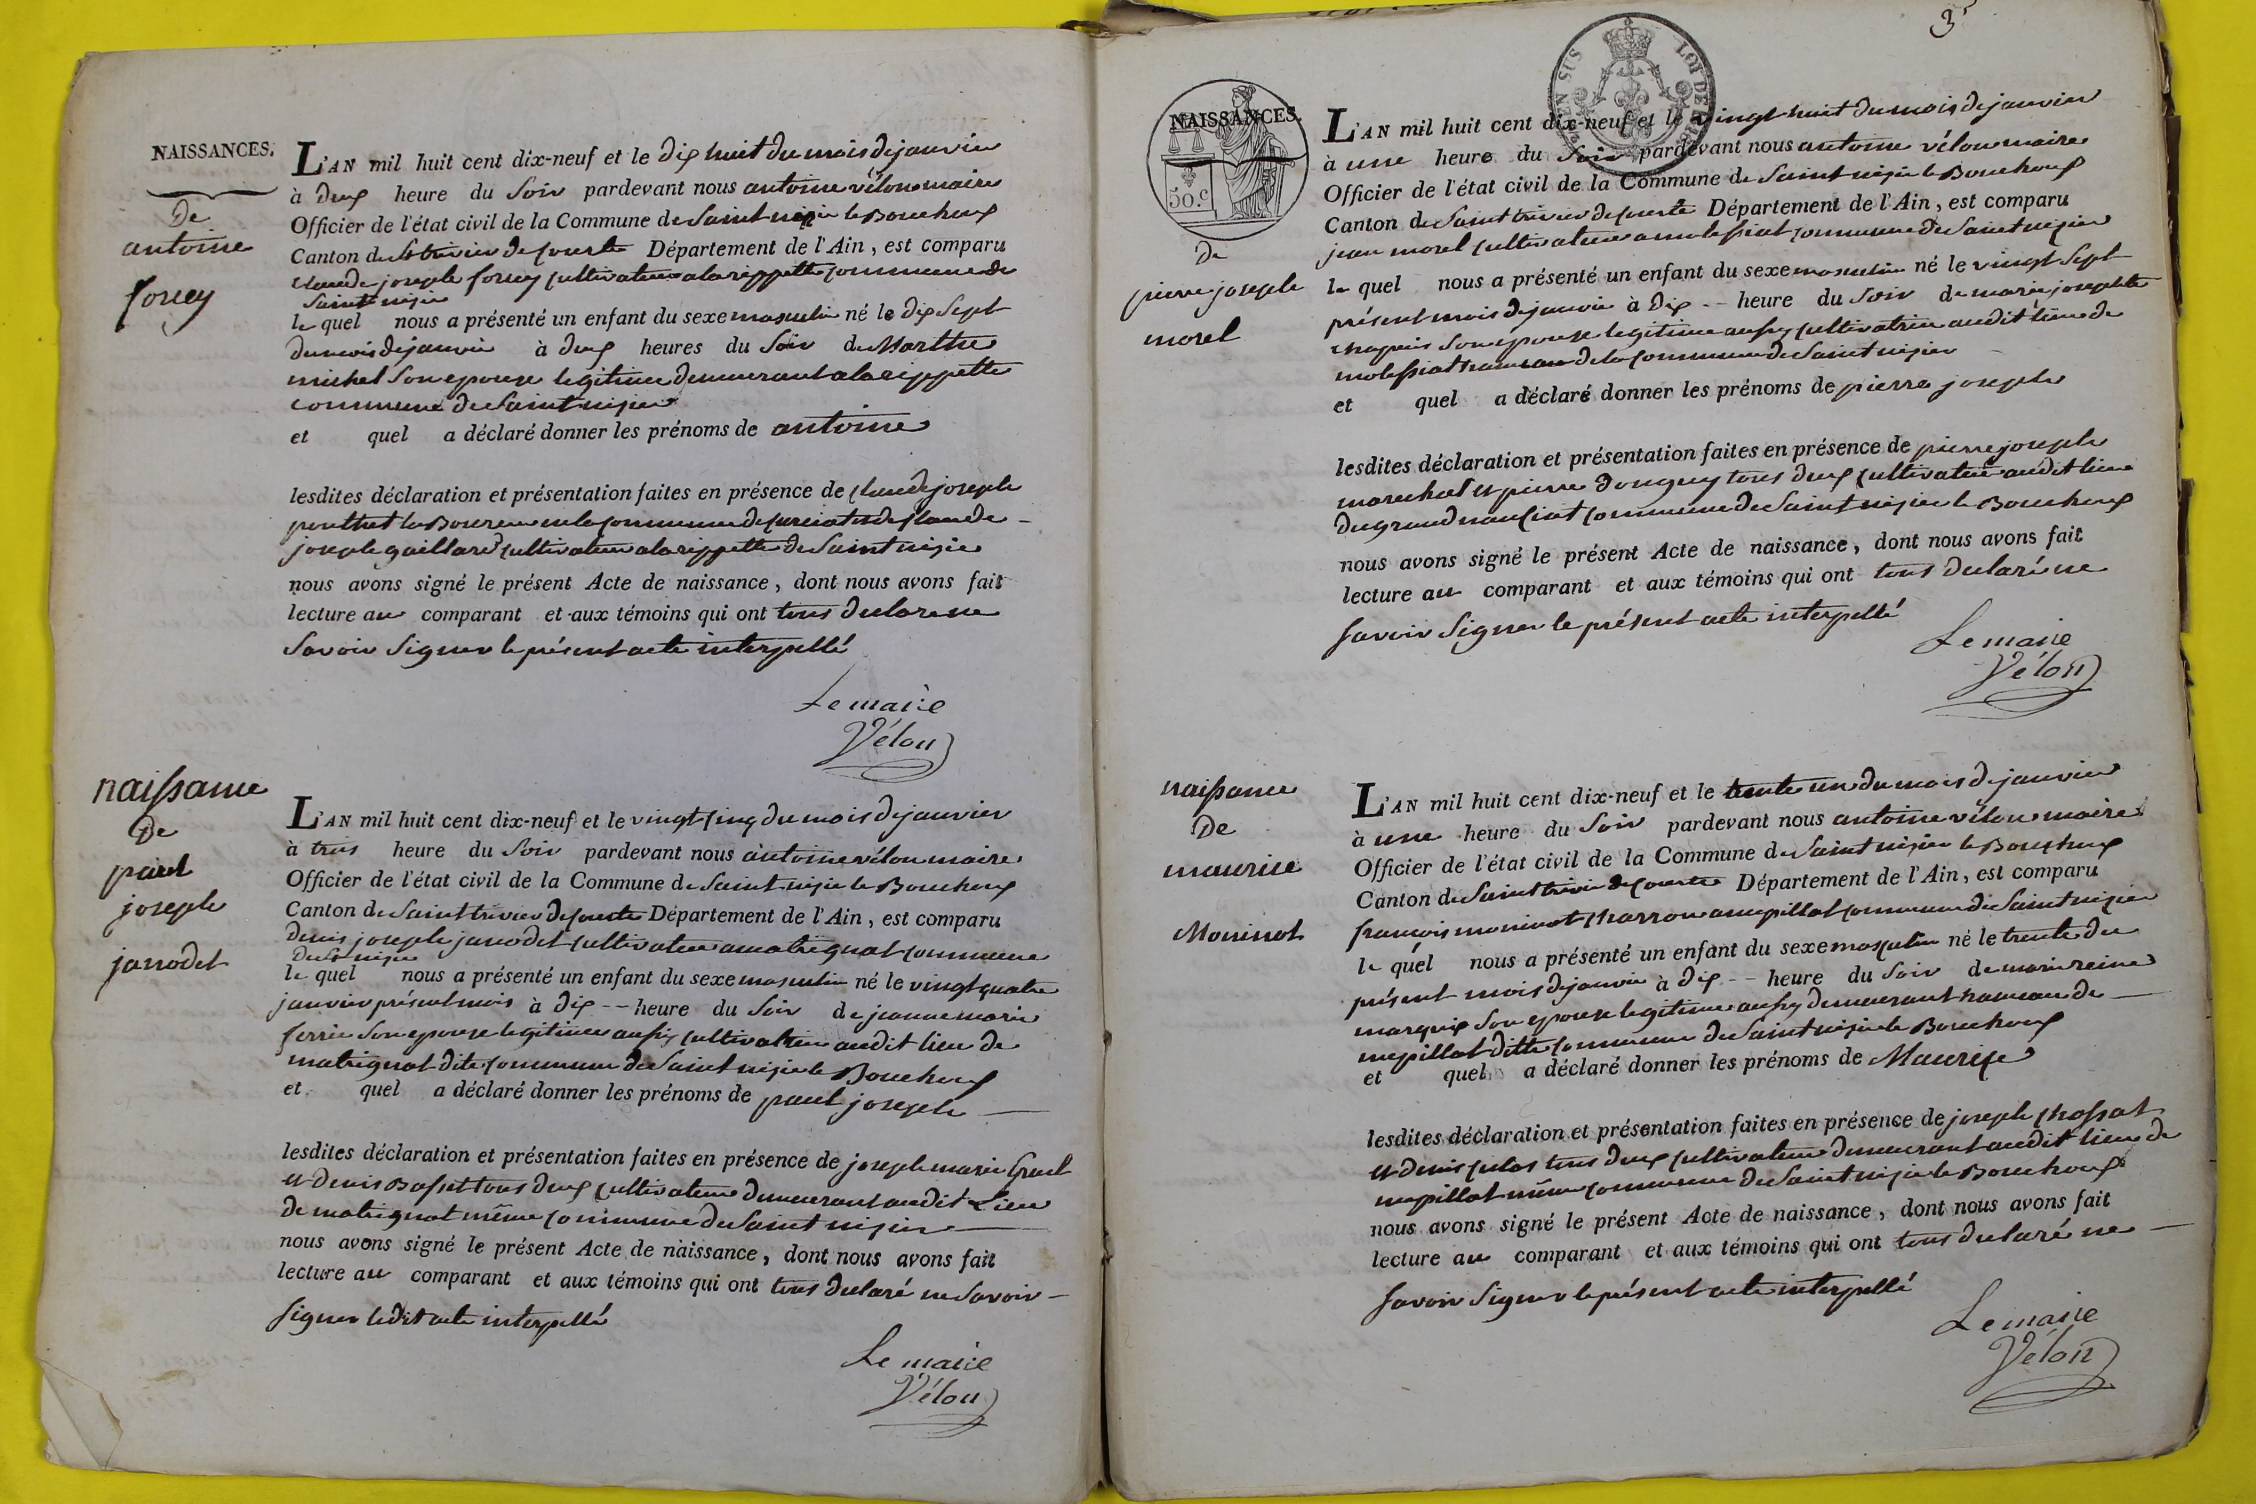 NAISSANCES.
De
antoine
forey
L'AN mil huit cent dix-neuf et le dix huit du mois de janvier
à deux heure du Soir pardevant nous antoine vélon maire
Officier de l'état civil de la Commune de Saint nizier le Bouchoux
Canton de St trivier de Courte Département de l'Ain, est comparu
claude joseph forey cultivateur a la rippette commune de
Saint nizier
le quel nous a présenté un enfant du sexe masculin né le dix Sept
du mois de janvier à deux heures du Soir de Marthe
michel Son epouze legitime demeurant a la rippette
commune de Saint nizier
et quel a déclaré donner les prénoms de antoine
lesdites déclaration et présentation faites en présence de claude joseph
en la commune de curciat et de claude
joseph gaillard cultivateur a la rippette de Saint nizier
nous avons signé le présent Acte de naissance, dont nous avons fait
lecture au comparant et aux témoins qui ont tous declare ne
Savoir Signer le présent acte interpellé
Le maire
Vélon
naissance
De
paul
joseph
jarrodet
L'AN mil huit cent dix-neuf et le vingt cinq du mois de janvier
à trois heure du Soir pardevant nous antoine vélon maire
Officier de l'état civil de la Commune de Saint nizier le Bouchoux
Canton de Saint trivier de Courte Département de l'Ain, est comparu
denis joseph jarrodet cultivateur a matrignat commune
de St nizier
le quel nous a présenté un enfant du sexe masculin né le vingt quatre
janvier présent mois à dix -- heure du Soir de jeanne marie
ferrier Son epouze legitime aussy cultivatrice audit lieu de
matrignat dite commune de Saint nizier le Bouchoux
et quel a déclaré donner les prénoms de paul joseph
lesdites déclaration et présentation faites en présence de joseph marie
et denis Basset tous deux cultivateur demeurant audit Lieu
de matrignat même commune de Saint nizier
nous avons signé le présent Acte de naissance, dont nous avons fait
lecture au comparant et aux témoins qui ont tous declaré ne Savoir
Signer ledit acte interpellé
Le maire
Vélon
3
EN SUS LOI DE
NAISSANCES.
50 C
de
pierre joseph
morel
L'AN mil huit cent dix-neuf et le vingt huit du mois de janvier
à une heure du Soir pardevant nous antoine vélon maire
Officier de l'état civil de la Commune de Saint nizier le Bouchoux
Canton de Saint trivier de Courte Département de l'Ain, est comparu
jean morel cultivateur a molessiat commune de Saint nizier
le quel nous a présenté un enfant du sexe masculin né le vingt Sept
présent mois de janvier à dix -- heure du Soir de marie josephte
chapuis Son epouze legitime aussy cultivatrice audit lieu de
molessiat hameau de la commune de Saint nizier
et quel a déclaré donner les prénoms de pierre joseph
lesdites déclaration et présentation faites en présence de pierre joseph
marechal et pierre Donguy tous deux cultivateur audit lieu
du grand nanciat commune de Saint nizier le Bouchoux
nous avons signé le présent Acte de naissance, dont nous avons fait
lecture au comparant et aux témoins qui ont tous declaré ne
Savoir Signer le présent acte interpellé
Le maire
Vélon
naissance
De
maurise
Moninot
L'AN mil huit cent dix-neuf et le trente un du mois de janvier
à une heure du Soir pardevant nous antoine vélon maire
Officier de l'état civil de la Commune de Saint nizier le Bouchoux
Canton de Saint trivier de Courte Département de l'Ain, est comparu
françois moninot charron a mepillat commune de Saint nizier
le quel nous a présenté un enfant du sexe masculin né le trente du
présent mois de janvier à dix -- heure du Soir de marie reine
marquis Son epouze legitime aussy demeurant hameau de
mepillat ditte commune de Saint nizier le Bouchoux
et quel a déclaré donner les prénoms de Maurise
lesdites déclaration et présentation faites en présence de joseph chassat
et denis tous deux cultivateur demeurant audit lieu de
mepillat même commune de Saint nizier le Bouchoux
nous avons signé le présent Acte de naissance, dont nous avons fait
lecture au comparant et aux témoins qui ont tous declaré ne
Savoir Signer le présent acte interpellé
Le maire
Vélon